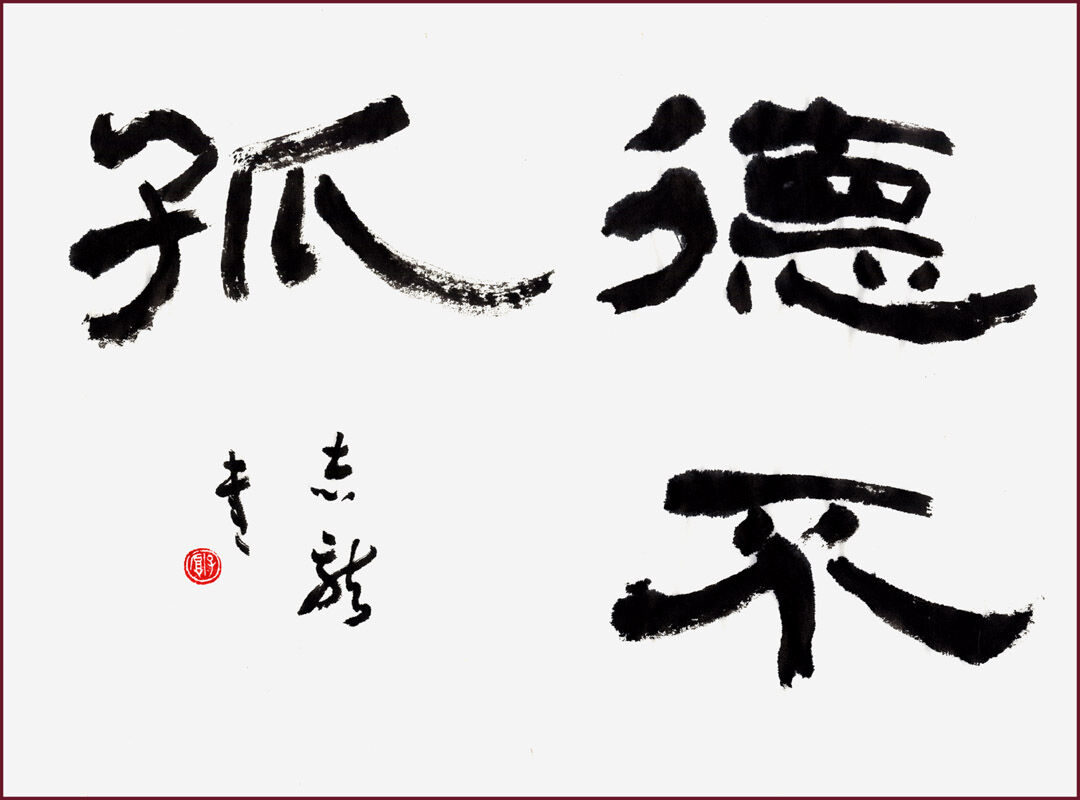 德不
孤
志龍
書